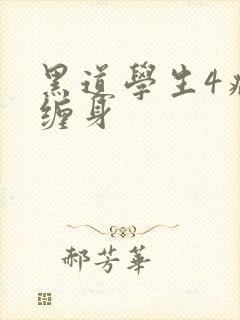 黑道學生4
缠身
郝芳華